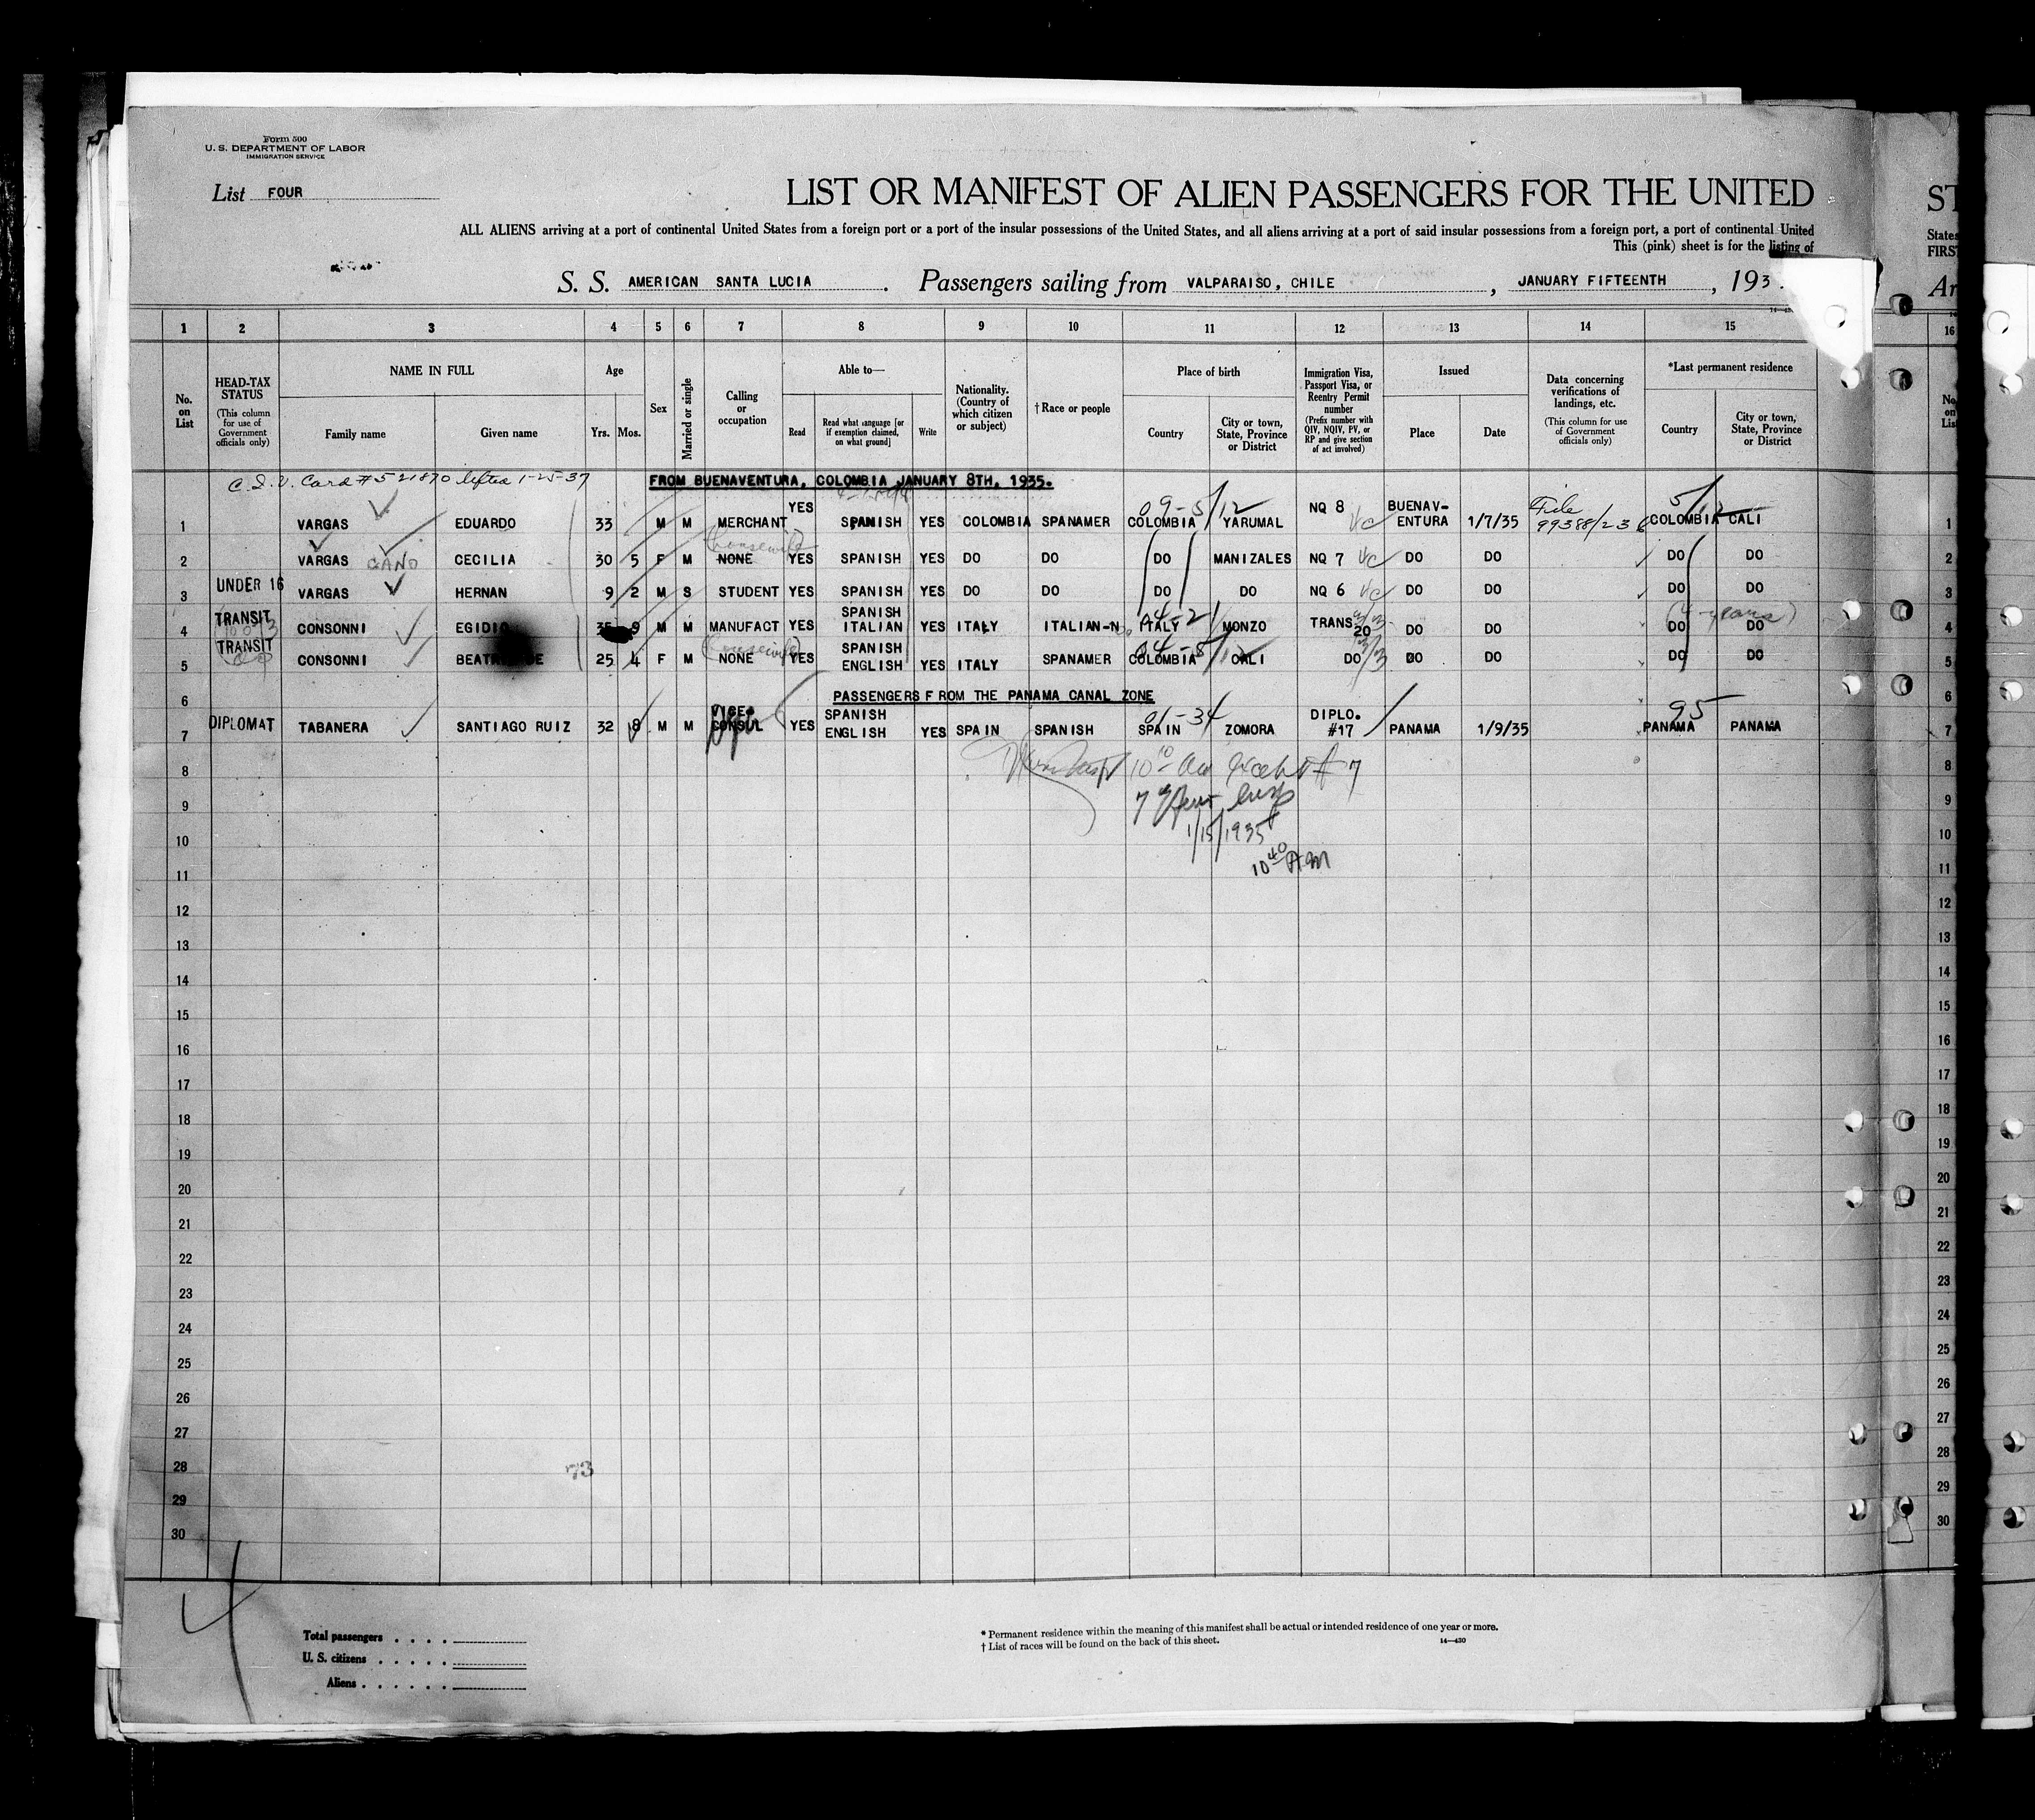 Form 500
U. S. DEPARTMENT OF LABOR
IMMIGRATION SERVICE
List FOUR
LIST OR MANIFEST OF ALIEN PASSENGERS FOR THE UNITED
ALL ALIENS arriving at a port of continental United States from a foreign port or a port of the insular possessions of the United States, and all aliens arriving at a port of said insular possessions from a foreign port, a port of continental United
This (pink) sheet is for the listing of
S. S. AMERICAN SANTA LUCIA . Passengers sailing from VALPARAISO, CHILE , JANUARY FIFTEENTH , 193
1 2 3 4 5 6 7 8 9 10 11 12 13 14 15
No. on List
HEAD-TAX STATUS (This column for use of Government officials only)
NAME IN FULL
Family name Given name
Age
Yrs. Mos.
Sex
Married or single
Calling or occupation
Able to—
Read Read what language [or if exemption claimed, on what ground] Write
Nationality. (Country of which citizen or subject)
† Race or people
Place of birth
Country City or town, State, Province or District
Immigration Visa, Passport Visa, or Reentry Permit number (Prefix number with QIV, NQIV, PV, or RP and give section of act involved)
Issued
Place Date
Data concerning verifications of landings, etc. (This column for use of Government officials only)
*Last permanent residence
Country City or town, State, Province or District
C.I.V. Card #521870 lifted 1-25-37
FROM BUENAVENTURA, COLOMBIA JANUARY 8TH, 1935.
09-5/12 5/12
1 VARGAS EDUARDO 33 M M MERCHANT YES SPANISH YES COLOMBIA SPANAMER COLOMBIA YARUMAL NQ 8 BUENAVENTURA 1/7/35 File 99388/236 COLOMBIA CALI 1
2 VARGAS CANO CECILIA 30 5 F M NONE housewife YES SPANISH YES DO DO DO MANIZALES NQ 7 DO DO DO DO 2
3 UNDER 16 VARGAS HERNAN 9 2 M S STUDENT YES SPANISH YES DO DO DO DO NQ 6 DO DO DO DO 3
4 TRANSIT CONSONNI EGIDIO 35 9 M M MANUFACT YES SPANISH ITALIAN YES ITALY ITALIAN-N ITALY MONZO TRANS 20 DO DO DO DO (4 years) 4
5 TRANSIT CONSONNI 25 4 F M NONE housewife YES SPANISH ENGLISH YES ITALY SPANAMER COLOMBIA CALI DO DO DO DO DO 5
6 PASSENGERS FROM THE PANAMA CANAL ZONE 6
01-34 95
7 DIPLOMAT TABANERA SANTIAGO RUIZ 32 8 M M VICE-CONSUL YES SPANISH ENGLISH YES SPAIN SPANISH SPAIN ZOMORA DIPLO. #17 PANAMA 1/9/35 PANAMA PANAMA 7
8 8
9 9
1/15/1935
10 10
10 40 AM
11 11
12 12
13 13
14 14
15 15
16 16
17 17
18 18
19 19
20 20
21 21
22 22
23 23
24 24
25 25
26 26
27 27
28 73 28
29 29
30 30
4
Total passengers
U. S. citizens
Aliens
* Permanent residence within the meaning of this manifest shall be actual or intended residence of one year or more.
† List of races will be found on the back of this sheet.
14—430
ST
States
FIRST
Ar
16
No. on List